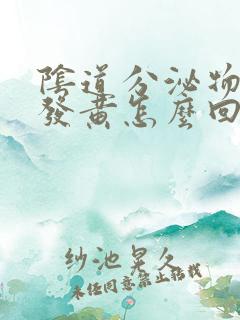 陰道分泌物
發黃怎麼回
紗池晃久
未经同意禁止转载